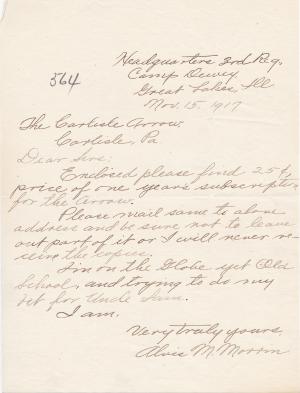 Headquarters 3rd Reg.
564
Camp Dewey
Great Lakes, Ill
Nov. 15, 1917
The Carlisle Arrow,
Carlisle, Pa
Dear Sirs:
Enclosed please find 25¢,
price of one year's subscription
for the Arrow.
Please mail same to above
address and be sure not to leave
out part of it or I will never re-
ceive the copies.
I'm on the Globe yet Old
School, and trying to do my
bit for Uncle Sam.
I am.
Very truly yours,
Alvis M. Morrin